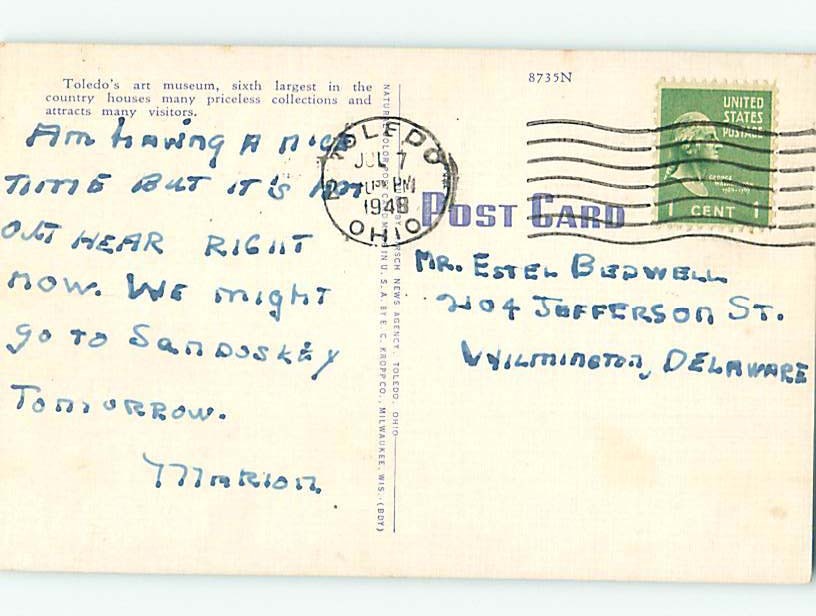 Toledo's art museum, sixth largest in the
country houses many priceless collections and
attracts many visitors.
Am having a nice
time but it's hot
out hear right
now. We might
go to Sanduskey
tomorrow.
Marion
NATURAL COLOR POST CARD MADE IN U.S.A. BY E. C. KROPP CO., MILWAUKEE, WIS. (BDY)
HIRSCH NEWS AGENCY, TOLEDO, OHIO
TOLEDO
JUL 7
PM
1948
OHIO
8735N
UNITED
STATES
POSTAGE
GEORGE
WASHINGTON
1 CENT 1
POST CARD
Mr. Estel Bedwell
2104 Jefferson St.
Wilmington, Delaware